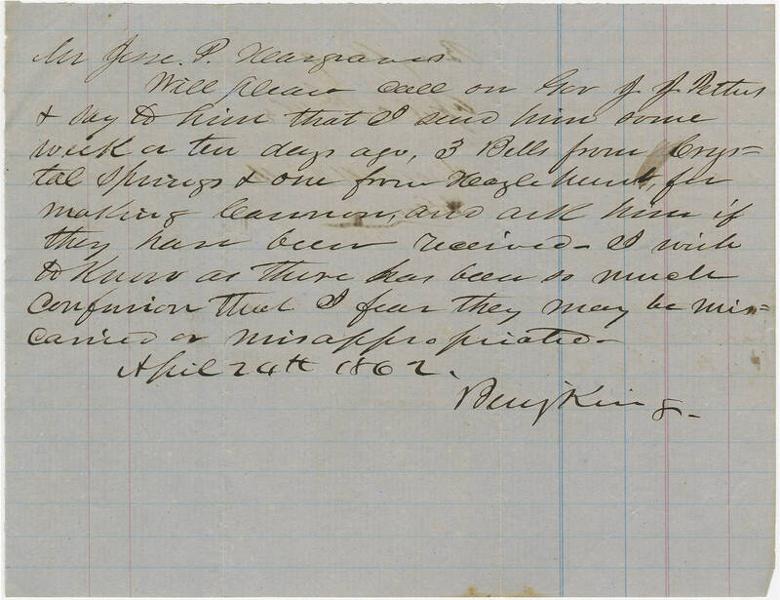 Mr Jesse. P. Hargraves
Will please call on Gov J. J. Pettus
& say to him that I send him some
week or ten days ago, 3 Bells from Crys=
tal Springs & one from Hazlehurst, for
making Cannon, and ask him if
they have been received - I wish
to know as there has been so much
confusion that I fear they may be mis=
carried or misappropriated -
April 24th 1862.
Benj King -